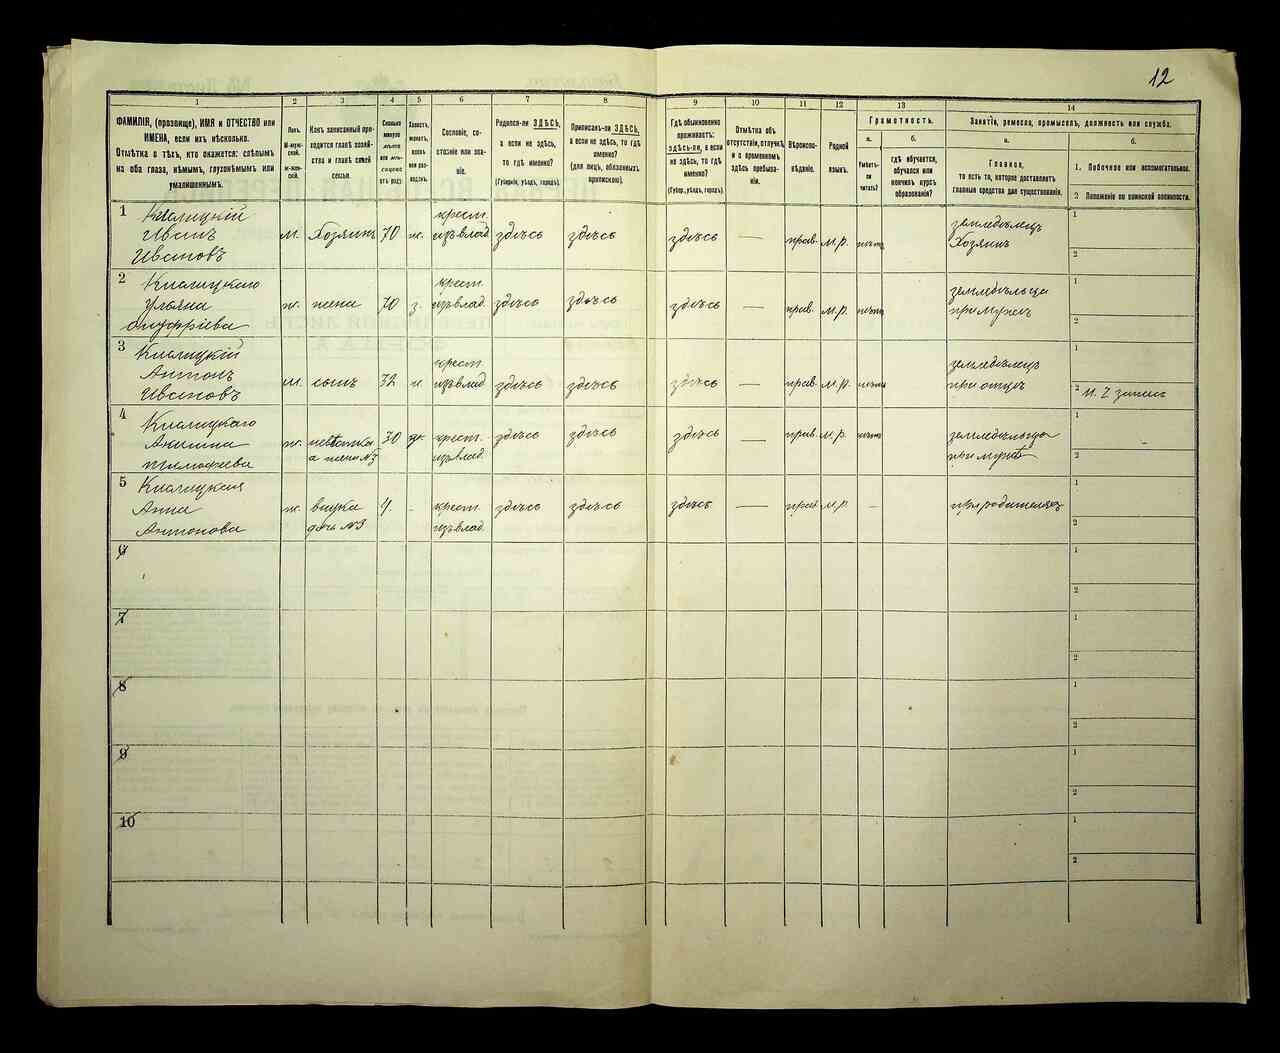 12
1
2
3
4
5
6
7
8
9
10
11
12
13
14
ФАМИЛІЯ, (прозвище), ИМЯ и ОТЧЕСТВО или
ИМЕНА, если ихъ нѣсколько.
Отмѣтка о тѣхъ, кто окажется: слѣпымъ
на оба глаза, нѣмымъ, глухонѣмымъ или
умалишеннымъ.
Полъ.
М-муж-
ской.
Ж-жен-
скій.
Какъ записанный при-
ходится главѣ хозяй-
ства и главѣ своей
семьи.
Сколько
минуло
лѣтъ
или мѣ-
сяцевъ
отъ роду.
Холостъ,
женатъ,
вдовъ
или раз-
веденъ.
Сословіе, со-
стояніе или зва-
ніе.
Родился-ли ЗДѢСЬ,
а если не здѣсь,
то гдѣ именно?
(Губернія, уѣздъ, городъ).
Приписанъ-ли ЗДѢСЬ,
а если не здѣсь, то гдѣ
именно?
(для лицъ, обязанныхъ
припискою).
Гдѣ обыкновенно
проживаетъ:
здѣсь-ли, а если
не здѣсь, то гдѣ
именно?
(Губер., уѣздъ, городъ).
Отмѣтка объ
отсутствіи, отлучкѣ
и о временномъ
здѣсь пребыва-
ніи.
Вѣроиспо-
вѣданіе.
Родной
языкъ.
Грамотность.
а.
Умѣетъ-
ли
читать?
б.
гдѣ обучается,
обучался или
кончилъ курсъ
образованія?
Занятіе, ремесло, промыселъ, должность или служба.
а.
Главное,
то есть то, которое доставляетъ
главныя средства для существованія.
б.
1. Побочное или вспомогательное.
2 Положеніе по воинской повинности.
1
Кислицкій
Иванъ
Ивановъ
м. Хозяинъ 70 ж.
крест.
изъ влад.
здѣсь здѣсь здѣсь — прав. м.р.
земледѣлецъ
Хозяинъ
1
2
2
Кислицкаго
Ульяна
Ануфріева
ж. жена 70 з.
крест.
изъ влад.
здѣсь здѣсь здѣсь — прав. м.р.
при мужѣ
1
2
3
Кислицкій
Антонъ
Ивановъ
м. сынъ 32
крест.
изъ влад.
здѣсь здѣсь здѣсь — прав. м.р.
земледѣлецъ
при отцѣ
1
2
4
Кислицкаго
ж. невѣстка 30
а жена №3
крест.
изъ влад.
здѣсь здѣсь здѣсь — прав. м.р.
при мужѣ
1
2
5
Кислицкая
Анна
Антонова
ж. внука 4.
дочь №3
крест.
изъ влад.
здѣсь здѣсь здѣсь — прав. м.р. -
при родителяхъ
1
2
6
1
2
7
1
2
8
1
2
9
1
2
10
1
2